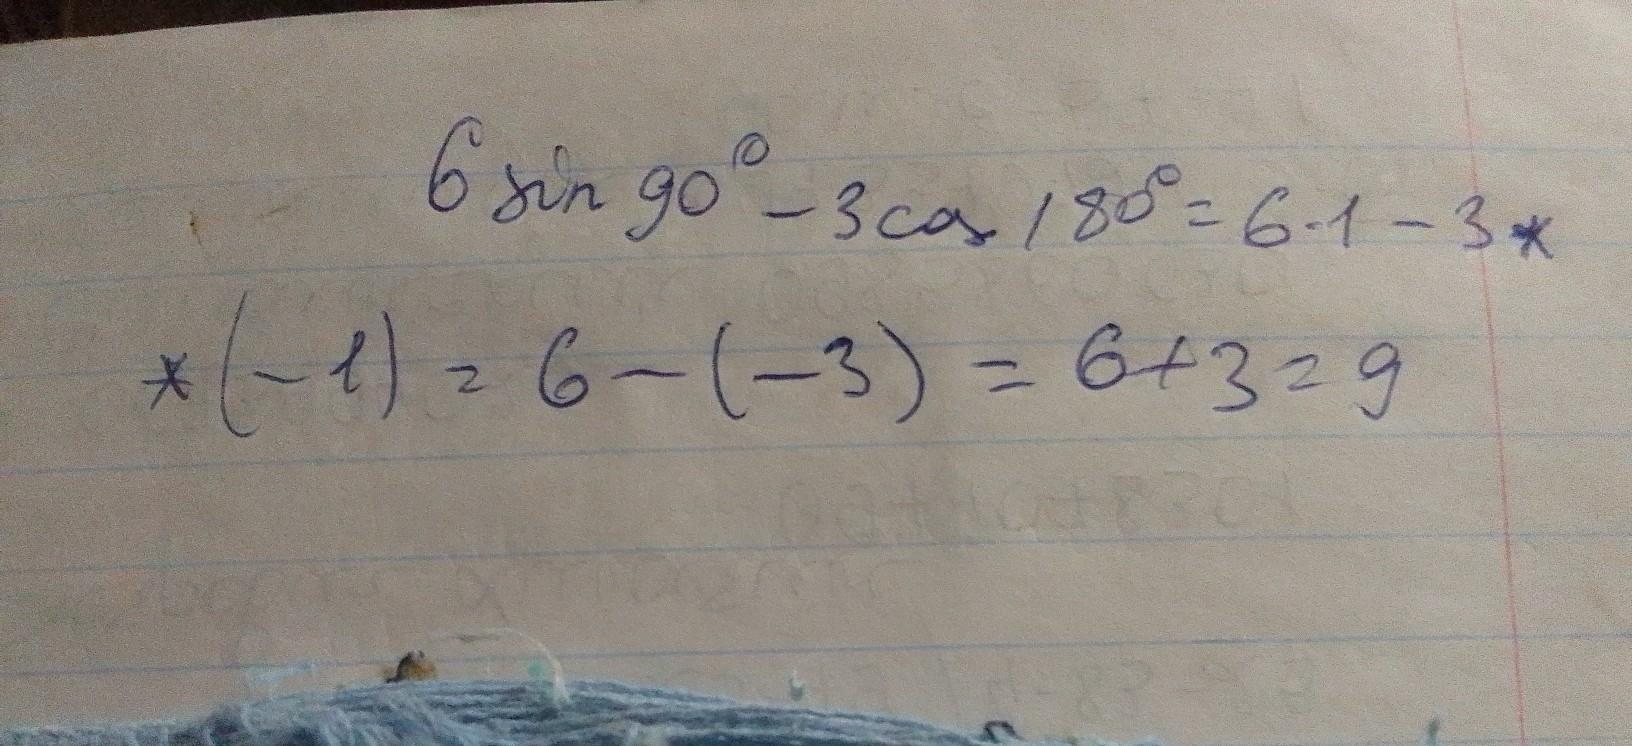 6 sin 90° - 3 cos 180° = 6·1 - 3 *
* (-1) = 6 - (-3) = 6 + 3 = 9